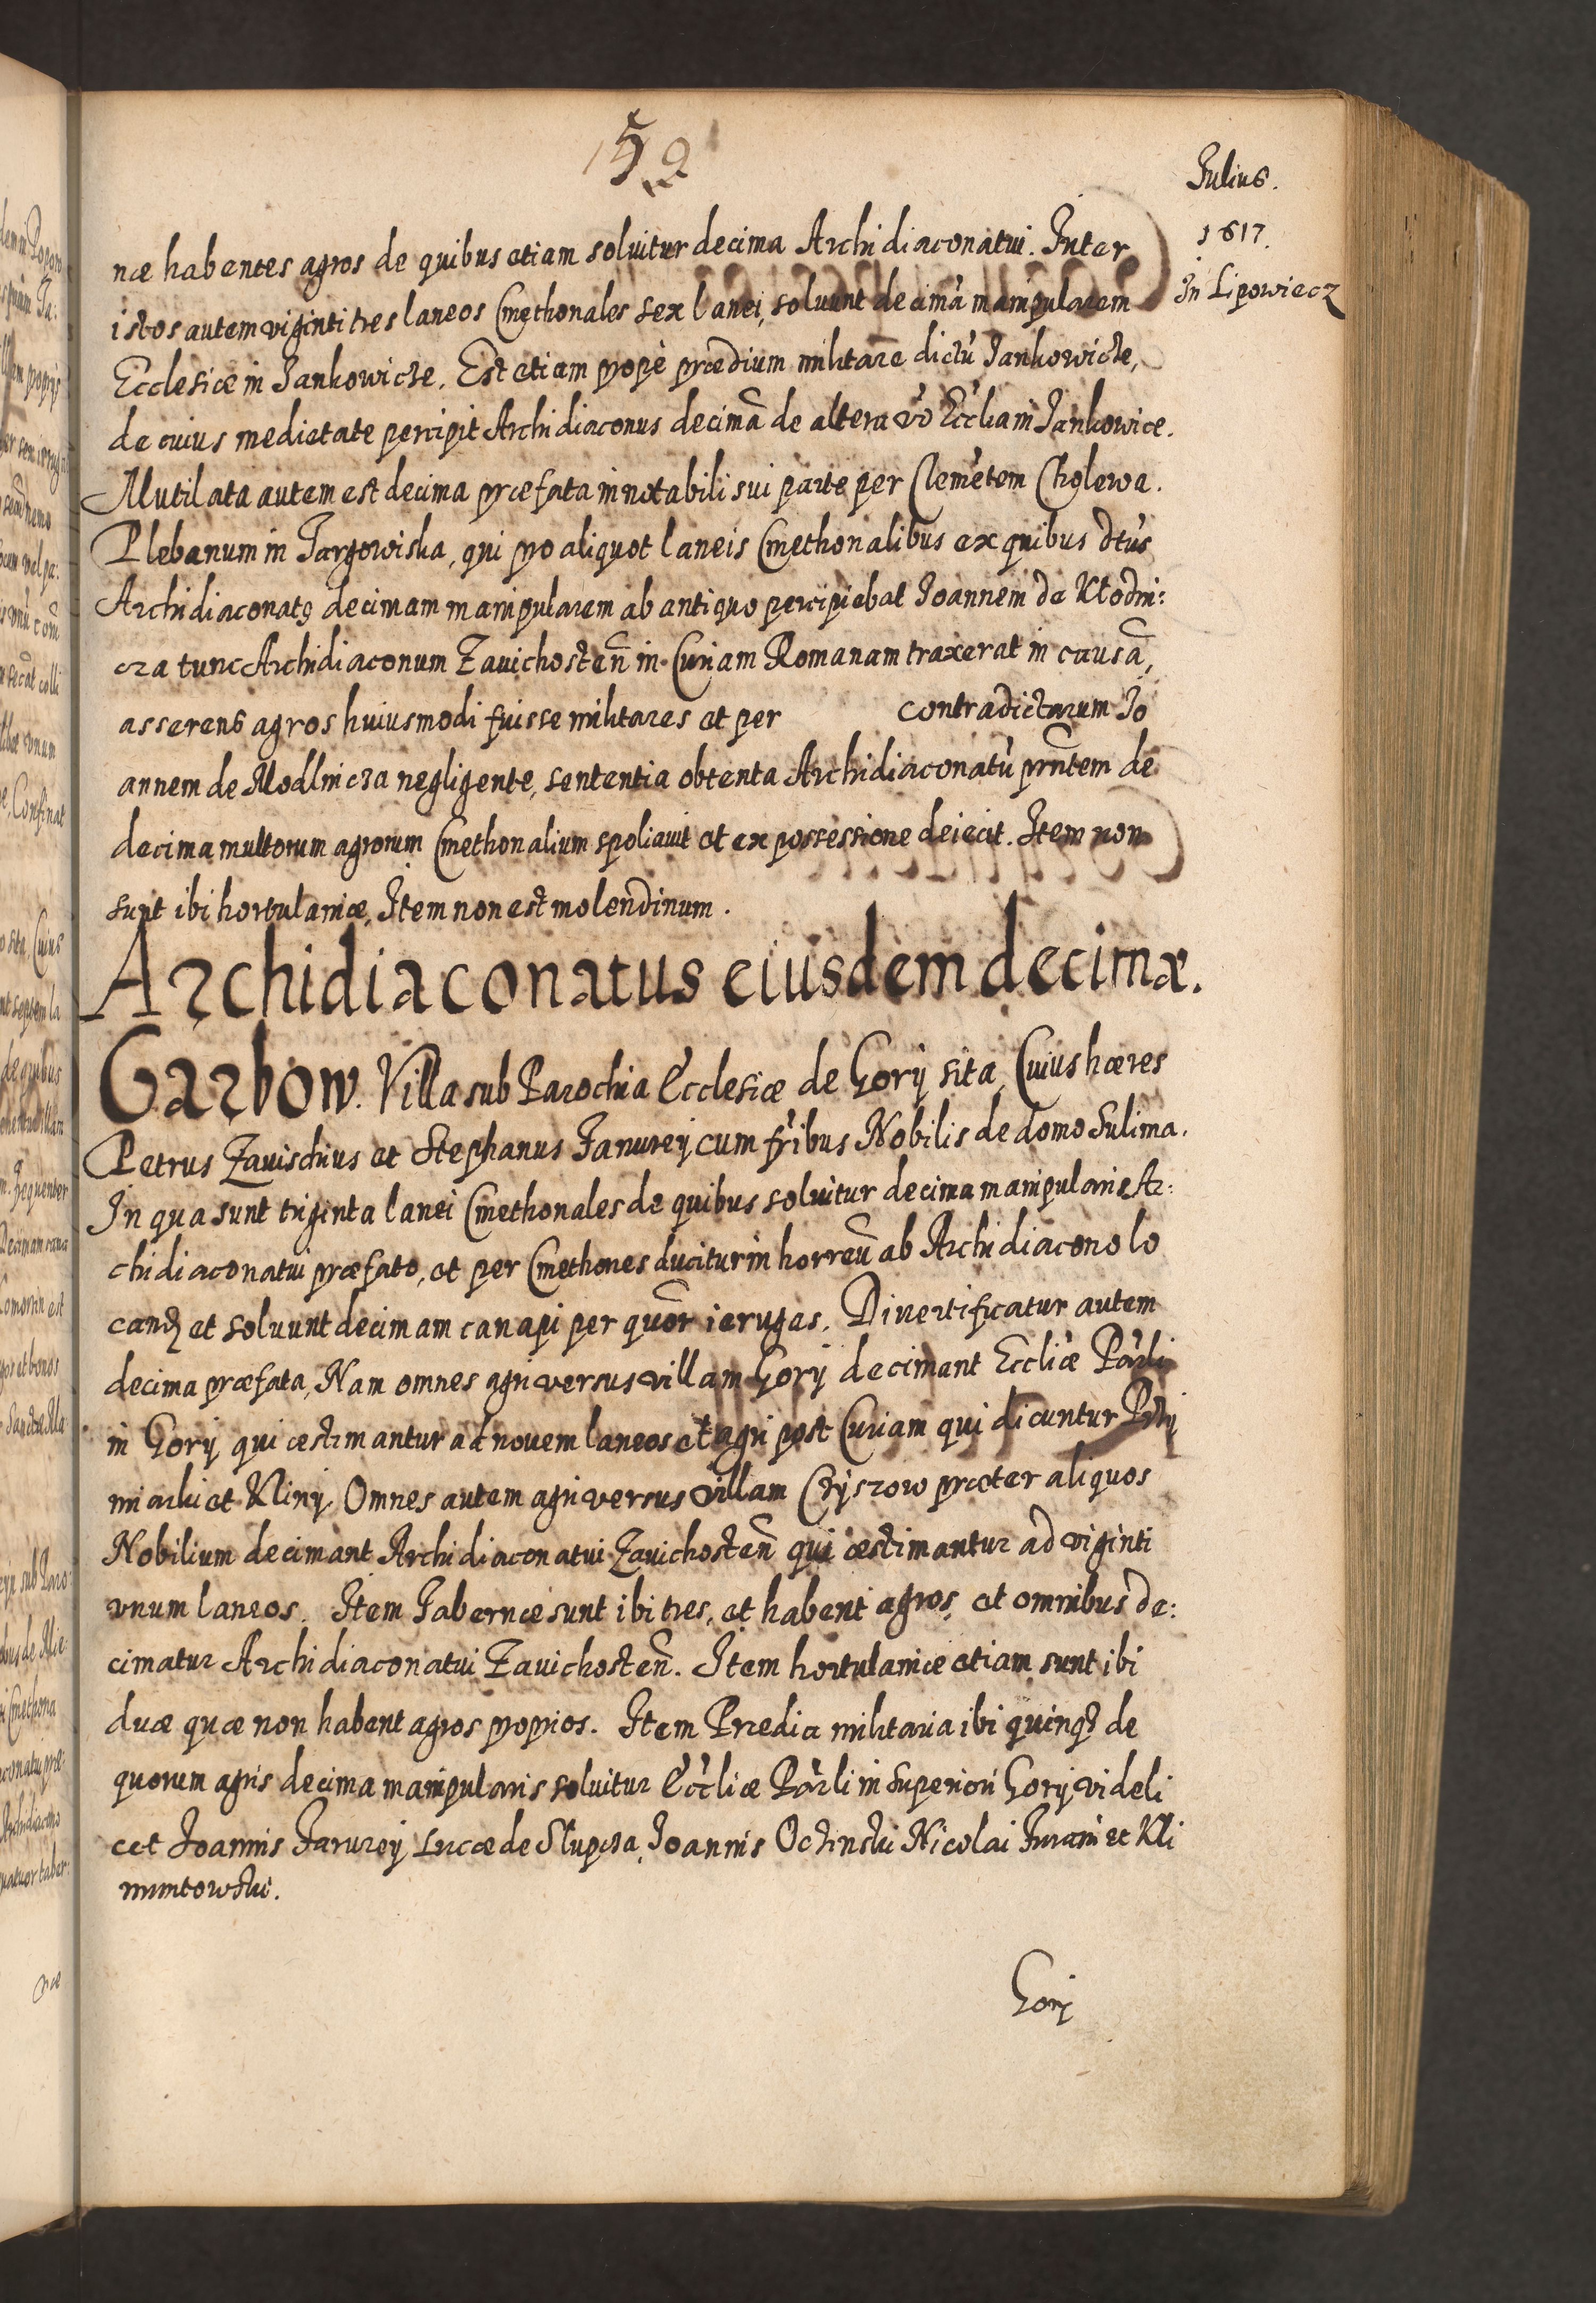 52
Julius.
1617.
In Lipowiecz
næ habentes agros de quibus etiam soluitur decima Archidiaconatui. Inter
istos autem viginti tres laneos Cmethonales sex lanei, soluunt decimã manipularem
Ecclesiæ in Jankowicze. Est etiam propè prædium militare dictũ Jankowicze,
de cuius medietate percipit Archidiaconus decimã de altera vò Eccłia in Jankowice.
Mutilata autem est decima præfata in notabili sui parte per Clemẽtem Cholewa.
Plebanum in Targowiska, qui pro aliquot laneis Cmethonalibus ex quibus dtus
Archidiaconatꝰ decimam manipularem ab antiquo percipiebat Joannem de Klodni:
cza tunc Archidiaconum Zauichosteñ in Curiam Romanam traxerat in causã,
asserens agros huiusmodi fuisse militares et per contradictarum Jo
annem de Modlnicza negligente, sententia obtenta Archidiaconatũ prñtem de
decima multorum agrorum Cmethonalium spoliauit et ex possessione deiecit. Item non
sunt ibi hortulaniæ, Item non est molendinum.
Archidiaconatus eiusdem decimæ.
Garbow. Villa sub Parochia Ecclesiæ de Gorÿ sita, Cuius hæres
Petrus Zauischius et Stephanus Janurej cum fribus Nobilis de domo Sulima.
In qua sunt triginta lanei Cmethonales de quibus soluitur decima manipularis Ar:
chidiaconatui præfato, et per Cmethones ducitur in horreũ ab Archidiacono lo
candꝫ et soluunt decimam canapi per quõr ierugas. Diuertificatur autem
decima præfata, Nam omnes agri versus villam Gorÿ decimant Eccliæ Parłi
in Gorÿ qui æstimantur ad nouem laneos et agri post Curiam qui dicuntur
miarki et Klinÿ. Omnes autem agri versus villam Czÿszow præter aliquos
Nobilium decimant Archidiaconatui Zauichosteñ qui æstimantur ad viginti
vnum laneos. Item Tabernæ sunt ibi tres, et habent agros et omnibus de:
cimatur Archidiaconatui Zauichosteñ. Item hortulaniæ etiam sunt ibi
duæ quæ non habent agros proprios. Item Prædia militaria ibi quinqꝫ de
quorum agris decima manipularis soluitur Eccłiæ Parłi in superiori Gorÿ videli
cet Joannis Jarurej Lucæ de Slupcza, Joannis Ochinski Nicolai Jurani et Kli
muntowski.
Gorÿ